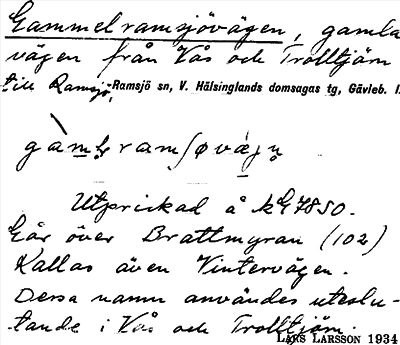 Gammelramsjövägen, gamla
vägen från Vås och Trolltjärn
till Ramsjö, Ramsjö sn, V. Hälsinglands domsagas tg, Gävleb. l.
Utprickad å kG7850.
Går över Brattmyran (102)
Kallas även Vintervägen.
Dessa namn användes uteslu-
tande i Vås och Trolltjärn.
LARS LARSSON 1934